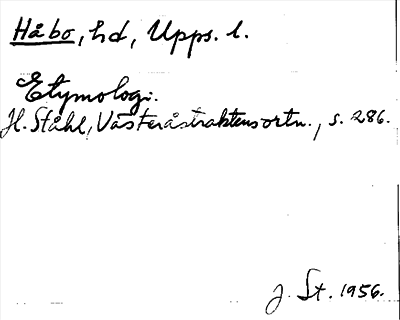 Håbo, hd, Upps. l.
Etymologi.
H. Ståhl, Västeråstraktens ortn., s. 286.
J. St. 1956.